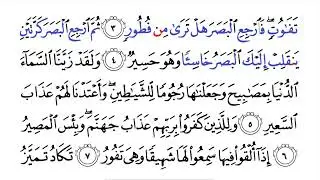 تَفَٰوُتٍۖ فَٱرْجِعِ ٱلْبَصَرَ هَلْ تَرَىٰ مِن فُطُورٍ ٣ ثُمَّ ٱرْجِعِ ٱلْبَصَرَ كَرَّتَيْنِ
يَنقَلِبْ إِلَيْكَ ٱلْبَصَرُ خَاسِئًا وَهُوَ حَسِيرٌ ٤ وَلَقَدْ زَيَّنَّا ٱلسَّمَآءَ
ٱلدُّنْيَا بِمَصَٰبِيحَ وَجَعَلْنَٰهَا رُجُومًا لِّلشَّيَٰطِينِۖ وَأَعْتَدْنَا لَهُمْ عَذَابَ
ٱلسَّعِيرِ ٥ وَلِلَّذِينَ كَفَرُوا۟ بِرَبِّهِمْ عَذَابُ جَهَنَّمَۖ وَبِئْسَ ٱلْمَصِيرُ
٦ إِذَآ أُلْقُوا۟ فِيهَا سَمِعُوا۟ لَهَا شَهِيقًا وَهِىَ تَفُورُ ٧ تَكَادُ تَمَيَّزُ